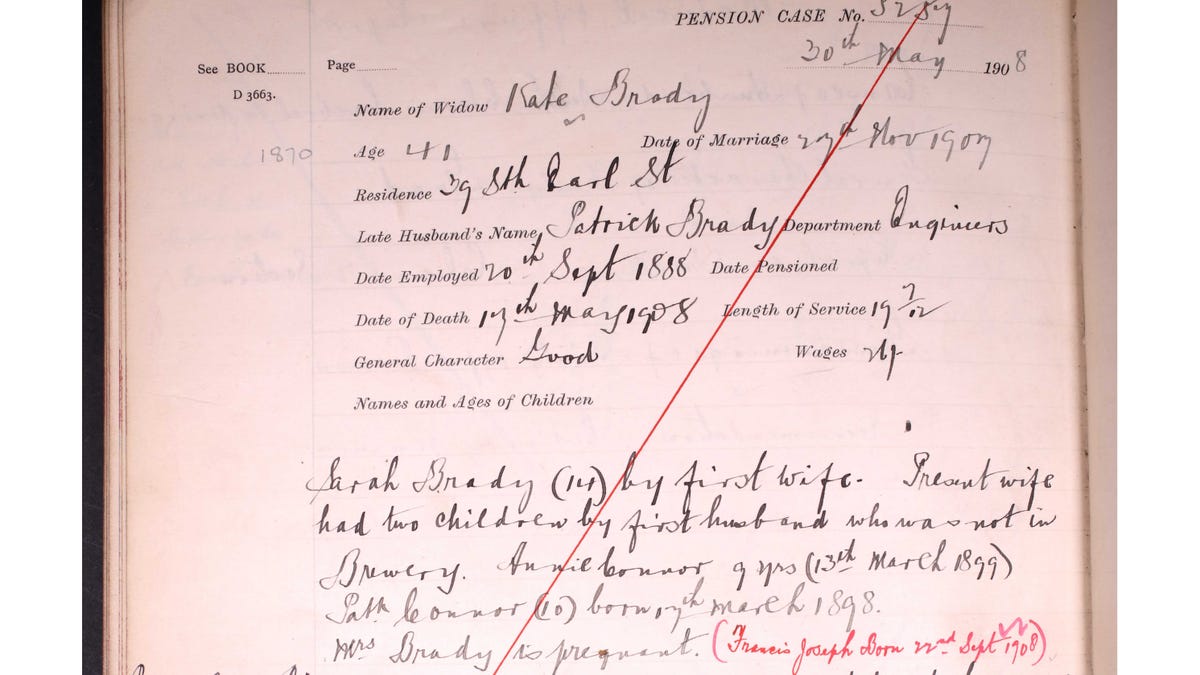 PENSION CASE No. 3257
30th May 1908
See BOOK Page
D 3663.
Name of Widow Kate Brady
1870 Age 41 Date of Marriage 27th Nov 1907
Residence 39 Sth Earl St
Late Husband's Name, Patrick Brady Department Engineers
Date Employed 20th Sept 1888 Date Pensioned
Date of Death 17th May 1908 Length of Service 19 7/12
General Character Good Wages
Names and Ages of Children
Sarah Brady (14) by first wife. Present wife
had two children by first husband who was not in
Brewery. Annie Connor 9 yrs (13th March 1899)
Patk Connor (10) born 17th March 1898.
Mrs Brady is pregnant. (Francis Joseph Born 22nd Sept 1908)